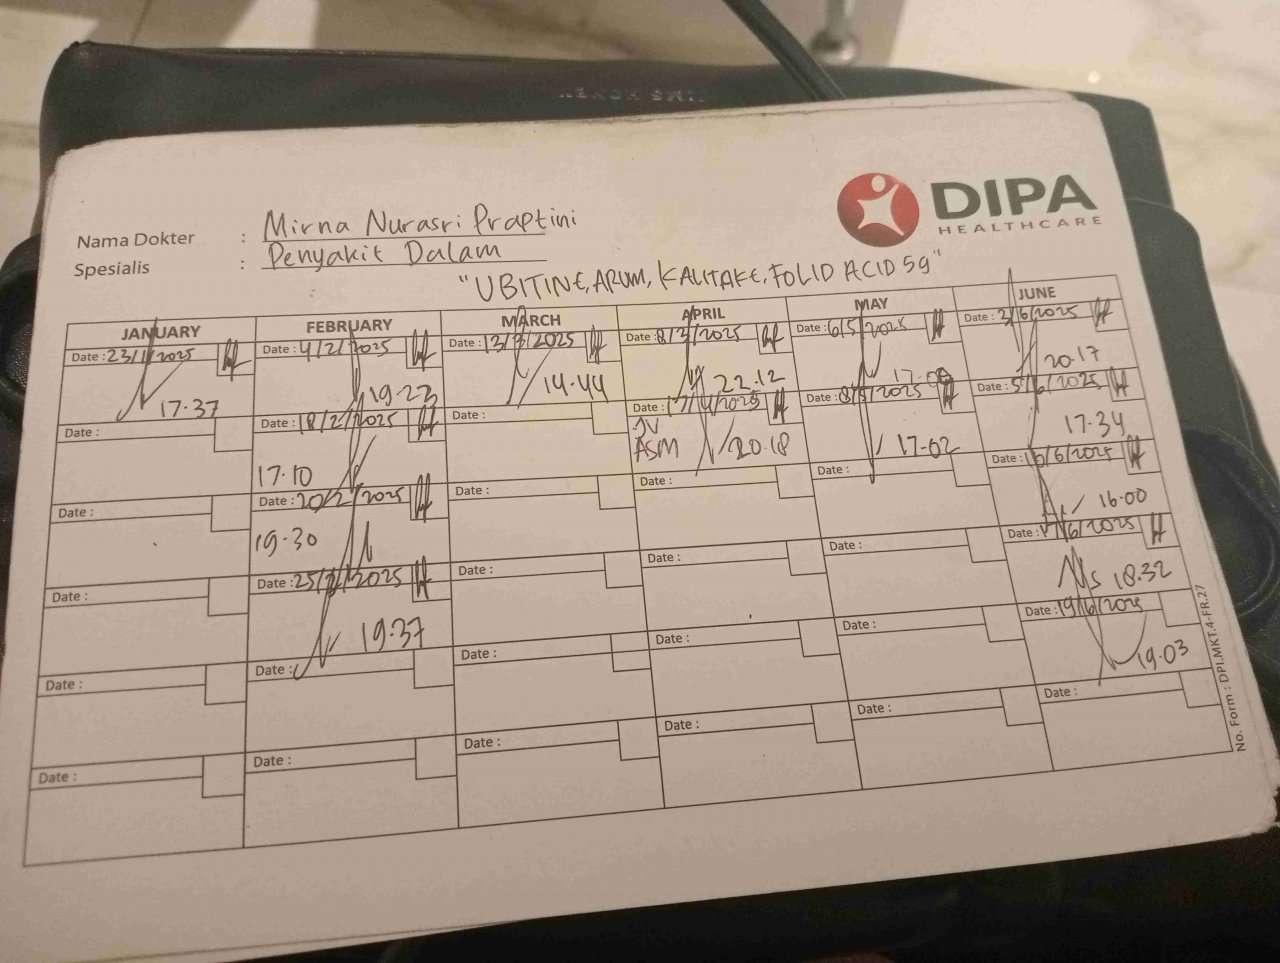 DIPA
HEALTHCARE
Nama Dokter : Mirna Nurasri Praptini
Spesialis : Penyakit Dalam
"UBITINE, ARUM, KALITAKE, FOLID ACID 5g"
JANUARY FEBRUARY MARCH APRIL MAY JUNE
Date : 23/1/2025 Date : 4/2/2025 Date : 13/3/2025 Date : 8/3/2025 Date : 6/5/2025 Date : 3/6/2025
17.37 19.23 14.44 22.12 17.00 20.17
Date : Date : 18/2/2025 Date : Date : 17/4/2025 Date : 8/5/2025 Date : 5/6/2025
17.10 JV ASM 20.18 17.02 17.34
Date : Date : 20/2/2025 Date : Date : Date : Date : 16/6/2025
19.30 16.00
Date : Date : 25/2/2025 Date : Date : Date : Date : 17/6/2025
19.37 18.32
Date : Date : Date : Date : Date : Date : 19/6/2025
19.03
Date : Date : Date : Date : Date : Date :
No. Form : DPI.MKT.4-FR.27